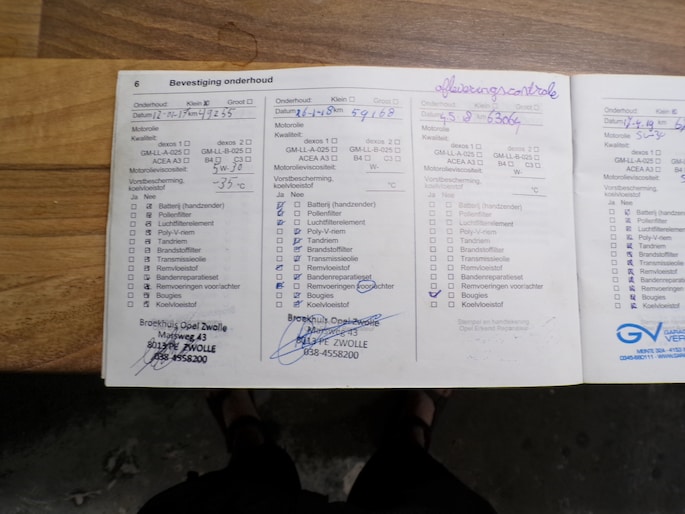 6 Bevestiging onderhoud
afleveringscontrole
Onderhoud: Klein Groot
Datum 12-01-17 km 49255
Motorolie
Kwaliteit:
dexos 1 dexos 2
GM-LL-A-025 GM-LL-B-025
ACEA A3 B4 C3
Motorolieviscositeit: 5W-30
Vorstbescherming,
koelvloeistof -35 °C
Ja Nee
Batterij (handzender)
Pollenfilter
Luchtfilterelement
Poly-V-riem
Tandriem
Brandstoffilter
Transmissieolie
Remvloeistof
Bandenreparatieset
Remvoeringen voor/achter
Bougies
Koelvloeistof
Broekhuis Opel Zwolle
Marsweg 43
8013 PE ZWOLLE
038-4558200
Onderhoud: Klein Groot
Datum 26-1-18 km 59168
Motorolie
Kwaliteit:
dexos 1 dexos 2
GM-LL-A-025 GM-LL-B-025
ACEA A3 B4 C3
Motorolieviscositeit: W-
Vorstbescherming,
koelvloeistof °C
Ja Nee
Batterij (handzender)
Pollenfilter
Luchtfilterelement
Poly-V-riem
Tandriem
Brandstoffilter
Transmissieolie
Remvloeistof
Bandenreparatieset
Remvoeringen voor/achter
Bougies
Koelvloeistof
Broekhuis Opel Zwolle
Marsweg 43
8013 PE ZWOLLE
038-4558200
Onderhoud: Klein Groot
Datum km 63064
Motorolie
Kwaliteit:
dexos 1 dexos 2
GM-LL-A-025 GM-LL-B-025
ACEA A3 B4 C3
Motorolieviscositeit: W-
Vorstbescherming,
koelvloeistof °C
Ja Nee
Batterij (handzender)
Pollenfilter
Luchtfilterelement
Poly-V-riem
Tandriem
Brandstoffilter
Transmissieolie
Remvloeistof
Bandenreparatieset
Remvoeringen voor/achter
Bougies
Koelvloeistof
Stempel en handtekening
Opel Erkend Reparateur
Onderhoud:
Datum
Motorolie
Kwaliteit:
dexos 1
GM-LL-A-025
ACEA A3
Motorolieviscositeit:
Vorstbescherming,
koelvloeistof
Ja Nee
Batterij (han
Pollenfilter
Luchtfilterele
Poly-V-riem
Tandriem
Brandstoffilte
Transmissieo
Remvloeistof
Bandenrepar
Remvoeringe
Bougies
Koelvloeistof
GV GARA
VER